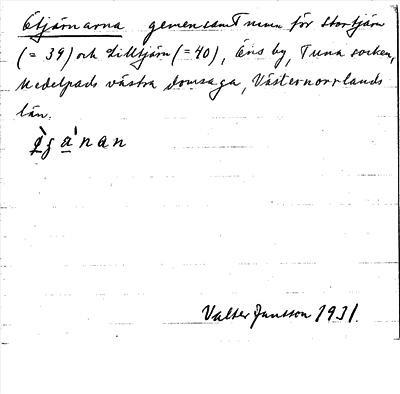 Etjärnarna gemensamt namn för Stortjärn
(= 39) och Lilltjärn (= 40), Ens by, Tuna socken,
Medelpads västra domsaga, Västernorrlands
län.
Valter Jansson 1931.